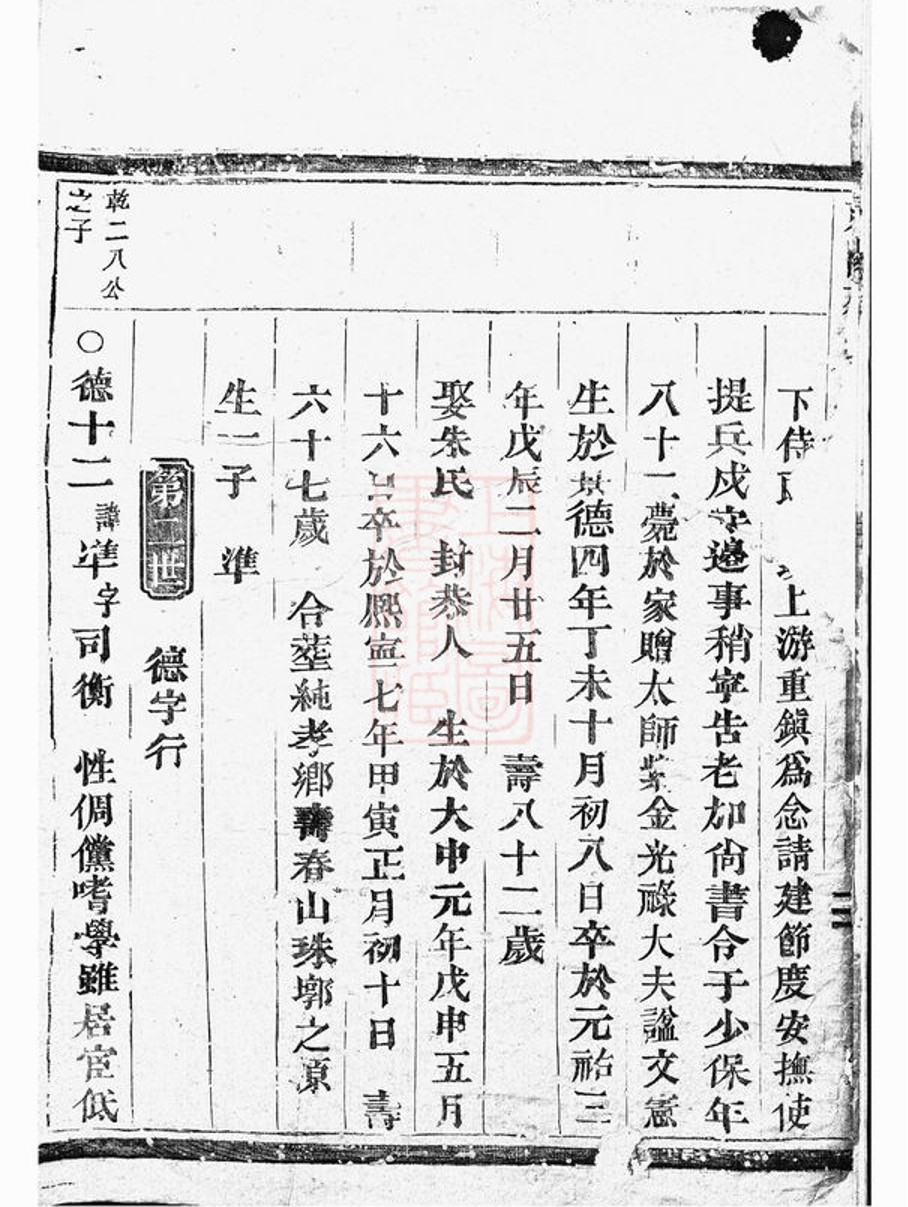 下侍　上游重鎮爲念請建節度安撫使
提兵戍守邊事稍寧告老加尚書令于少保年
八十一薨於家贈太師紫金光祿大夫諡文憲
生於景德四年丁未十月初八日卒於元祐三
年戊辰二月廿五日　壽八十二歲
娶朱氏　封恭人　生於大中元年戊申五月
十六日卒於熙寧七年甲寅正月初十日　壽
六十七歲　合塟純孝鄉壽春山珠郭之原
生一子　準
第二世　德字行
乾二八公
之子
○德十二諱準字司衡　性倜儻嗜學雖居官低